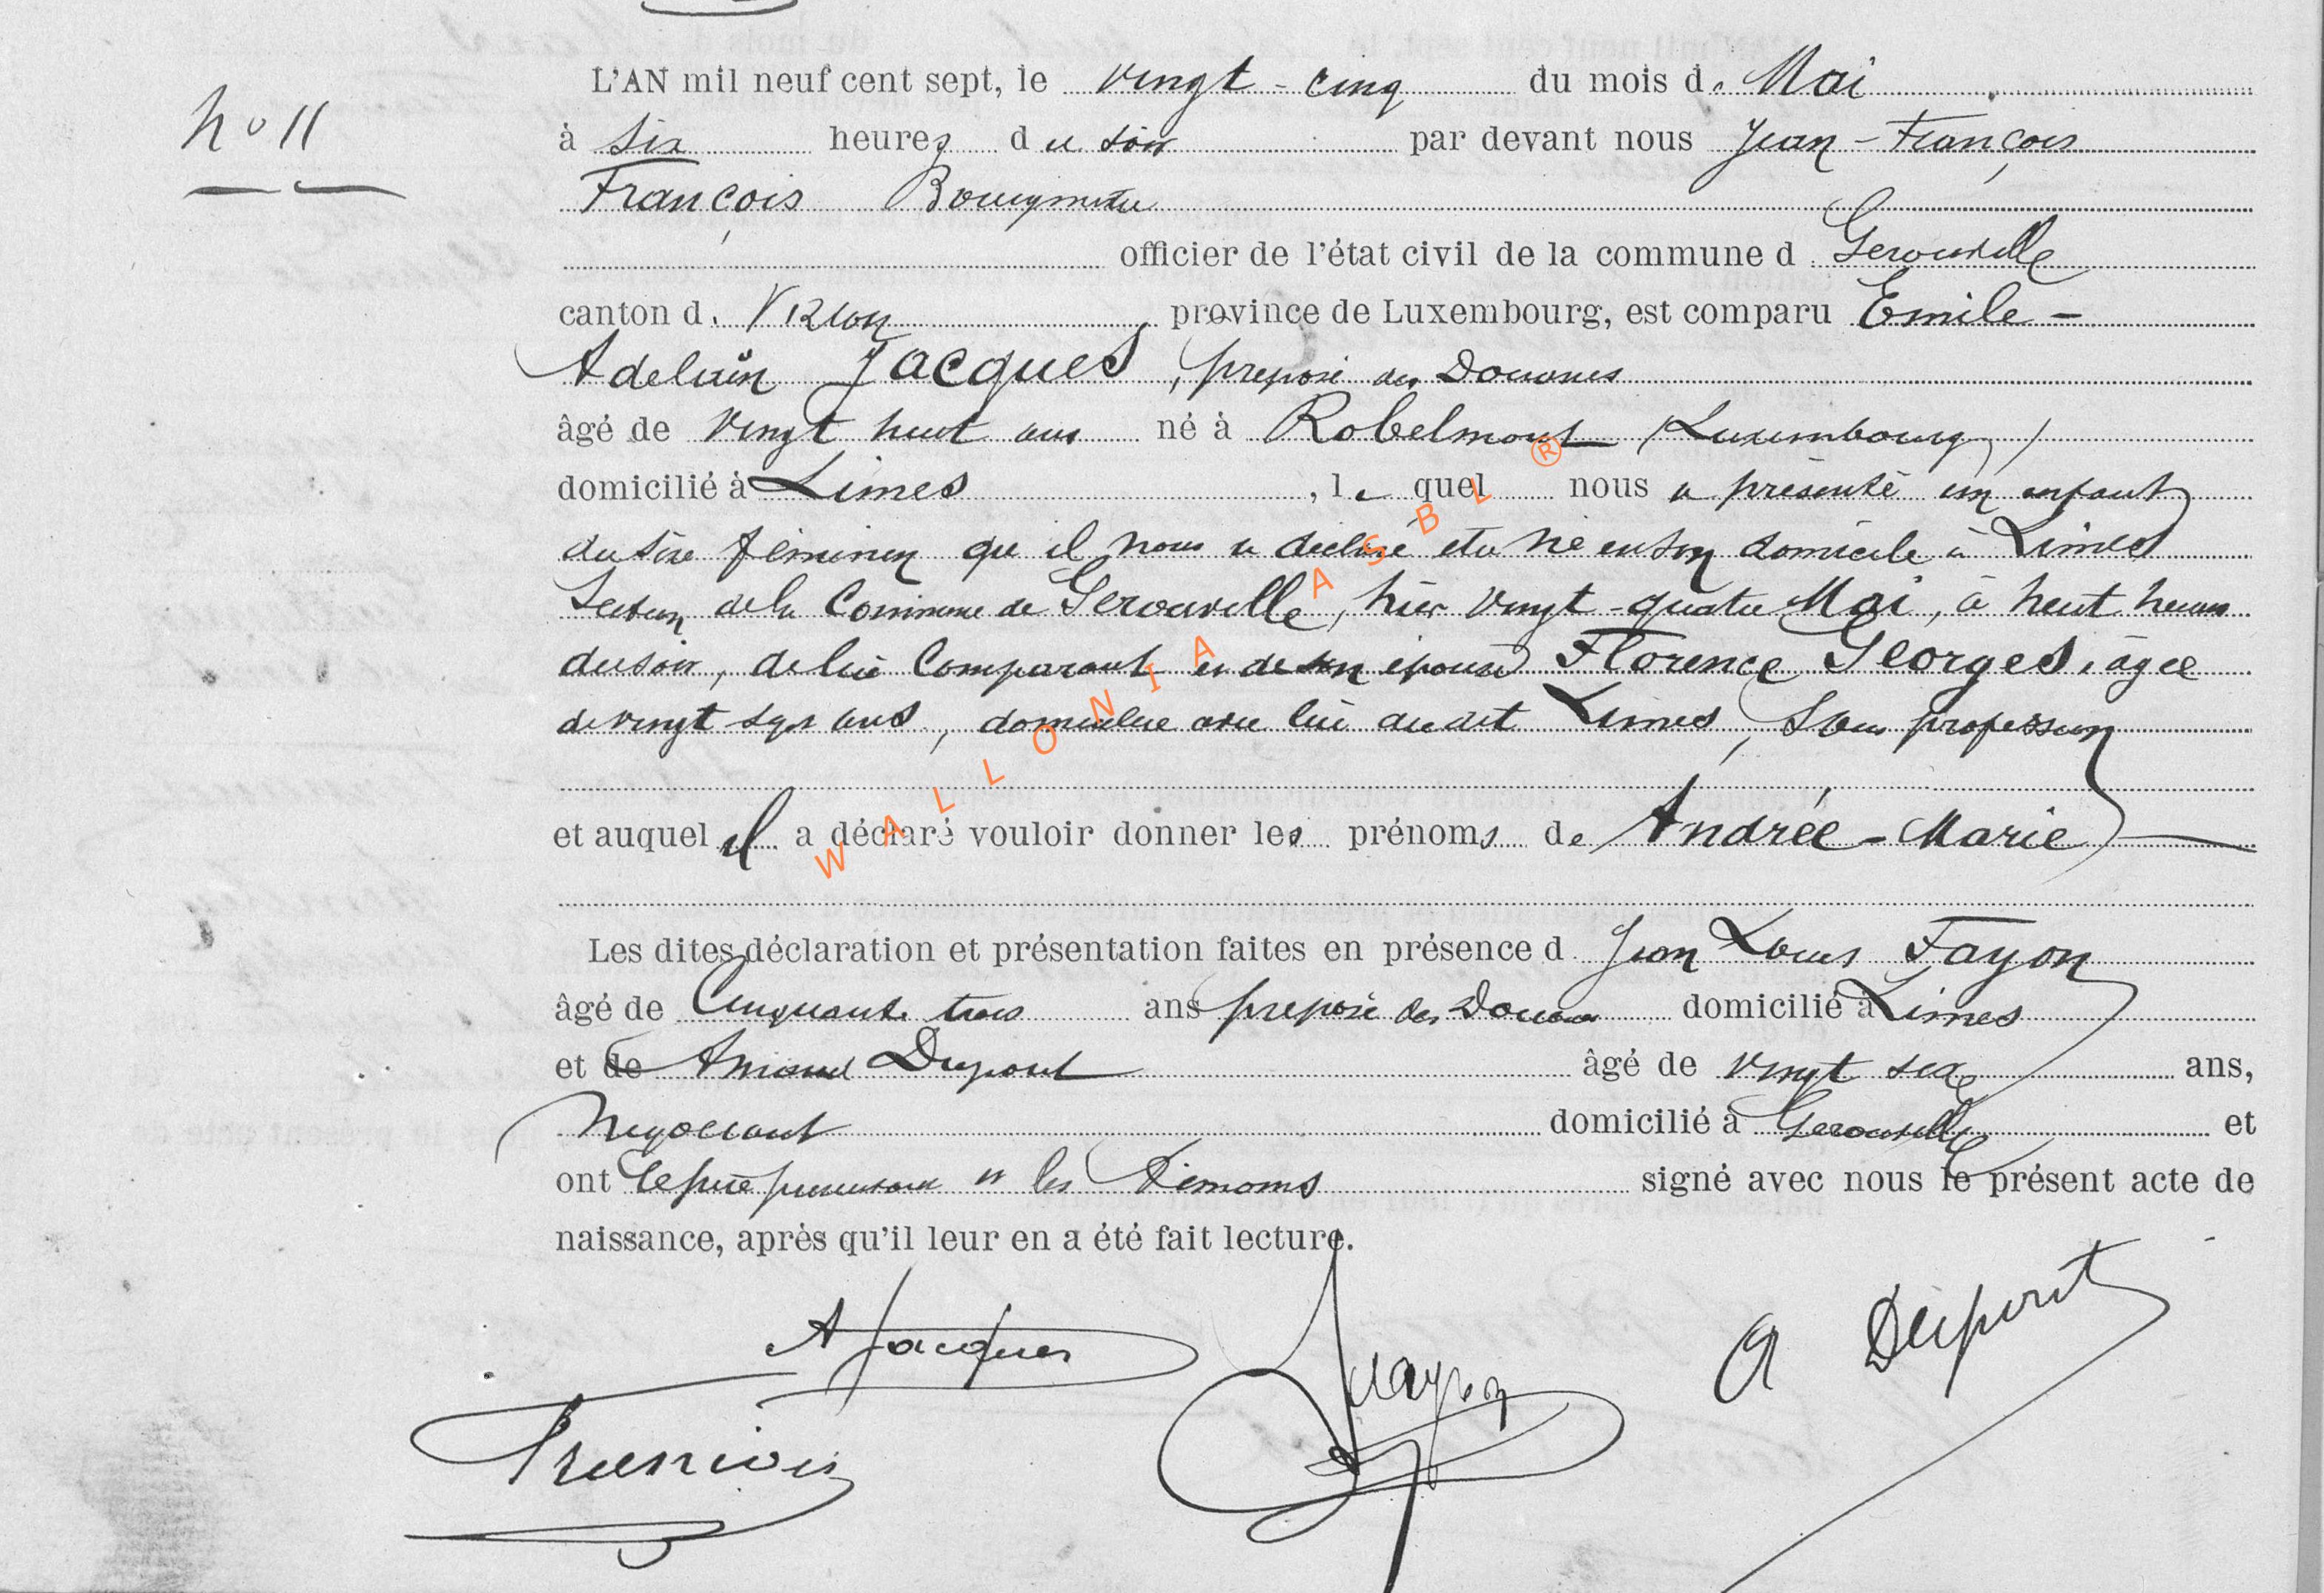 L'AN mil neuf cent sept, le vingt-cinq du mois de Mai
No 11
à six heures du soir par devant nous Jean-François
François
officier de l'état civil de la commune d Gerouville
canton d. Virton province de Luxembourg, est comparu Emile-
Adelain Jacques, préposé des Douanes
âgé de vingt huit ans né à Robelmont (Luxembourg)
domicilié à Limes, le quel nous a présenté un enfant
du sexe féminin qu'il nous a déclaré etre né en son domicile à Limes
Section de la Commune de Gerouville, hier vingt-quatre Mai, à huit heures
du soir, de lui Comparant et de son épouse Florence Georges, âgée
de vingt sept ans, domiciliée avec lui au dit Limes, sans profession
et auquel il a déclaré vouloir donner les prénoms de Andrée-Marie
Les dites déclaration et présentation faites en présence d Jean Louis Fayon
âgé de Cinquante trois ans préposé des Douanes domicilié à Limes
et de Amand Dupont âgé de vingt six ans,
Négociant domicilié à Gerouville et
ont le père et les Témoins signé avec nous le présent acte de
naissance, après qu'il leur en a été fait lecture.
A Jacques
A Dupont
WALLONIA ASBL ®